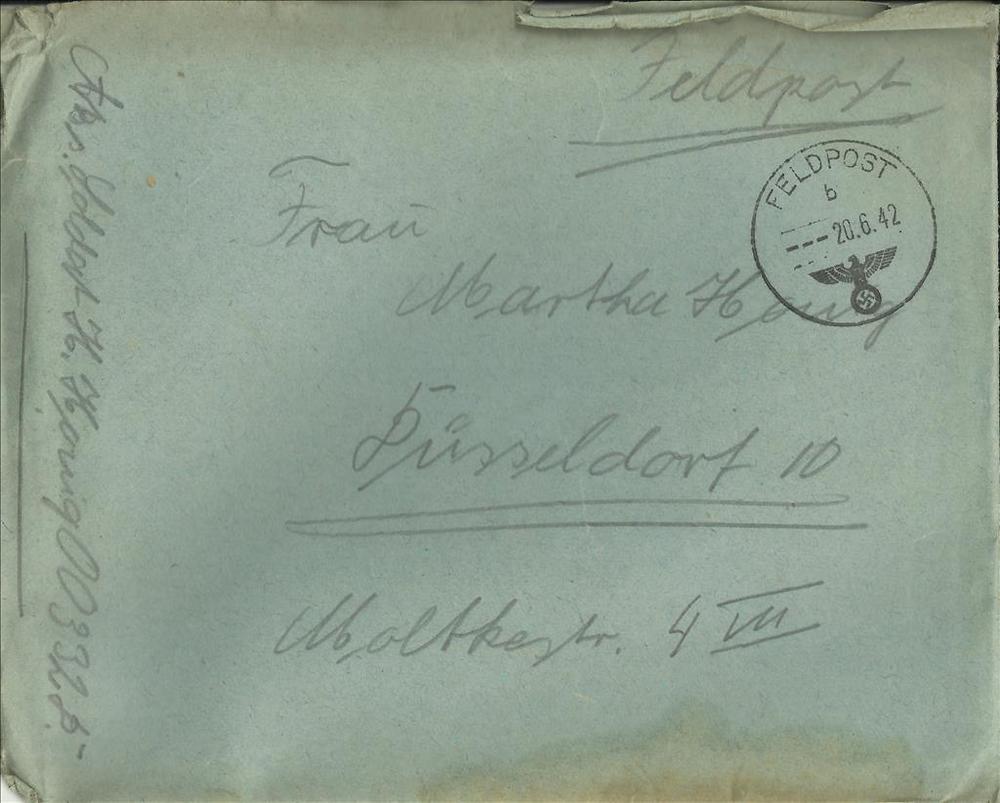 Feldpost
FELDPOST
b
20.6.42
Frau
Martha Honig
Düsseldorf 10
Moltkestr. 4 III
Abs. Soldat H. Hornig